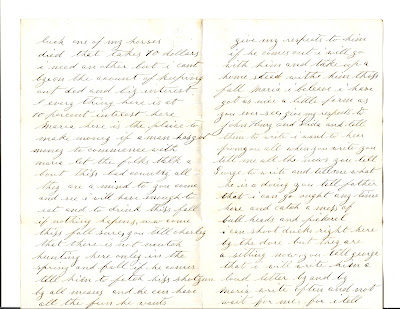 luck one of my horses
died that takes 90 dollars
i need another but i cant
on the account of keeping
out det and big interest
every thing here is at
10 percent interest here
Maria here is the place to
make money if a man has got
money to commence with
maria let the folks talk a
bout this bad country all
they are a mind to you come
and see i will have enough to
eat and to drink this fall
if nothing hapens, now come
this fall sure, you tell charly
that there is not mutch
hunting here only in the
spring and fall if he comes
tell him to fetch his shotgun
by all means and he can have
all the fun he wants
give my respects to him
if he comes out i will go
with him and take up a
home stead with him this
fall maria i beleve i have
got as nice a little farm as
you ever see give my respects to
John Hany and tell
them to write i want to hear
from you all when you write you
tell me all the news you tell
George to write and tell me what
he is a doing you tell father
that i can go out any time
here and catch a mess of
bull heads and pickerel
i can shoot ducks right here
by the dore but they are
a setting now you tell george
that i will write him a
loud letter by and by
maria write often and not
wait for me for i tell